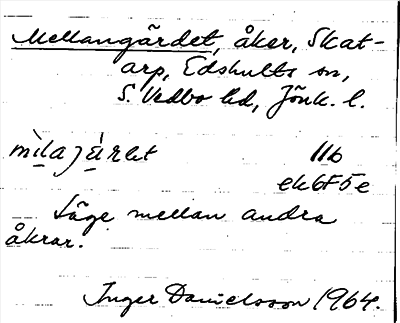 Mellangärdet, åker, Skat-
arp, Edshults sn,
S. Vedbo hd, Jönk. l.
11b
ek6F5e
Läge mellan andra
åkrar.
Inger Danielsson 1964.